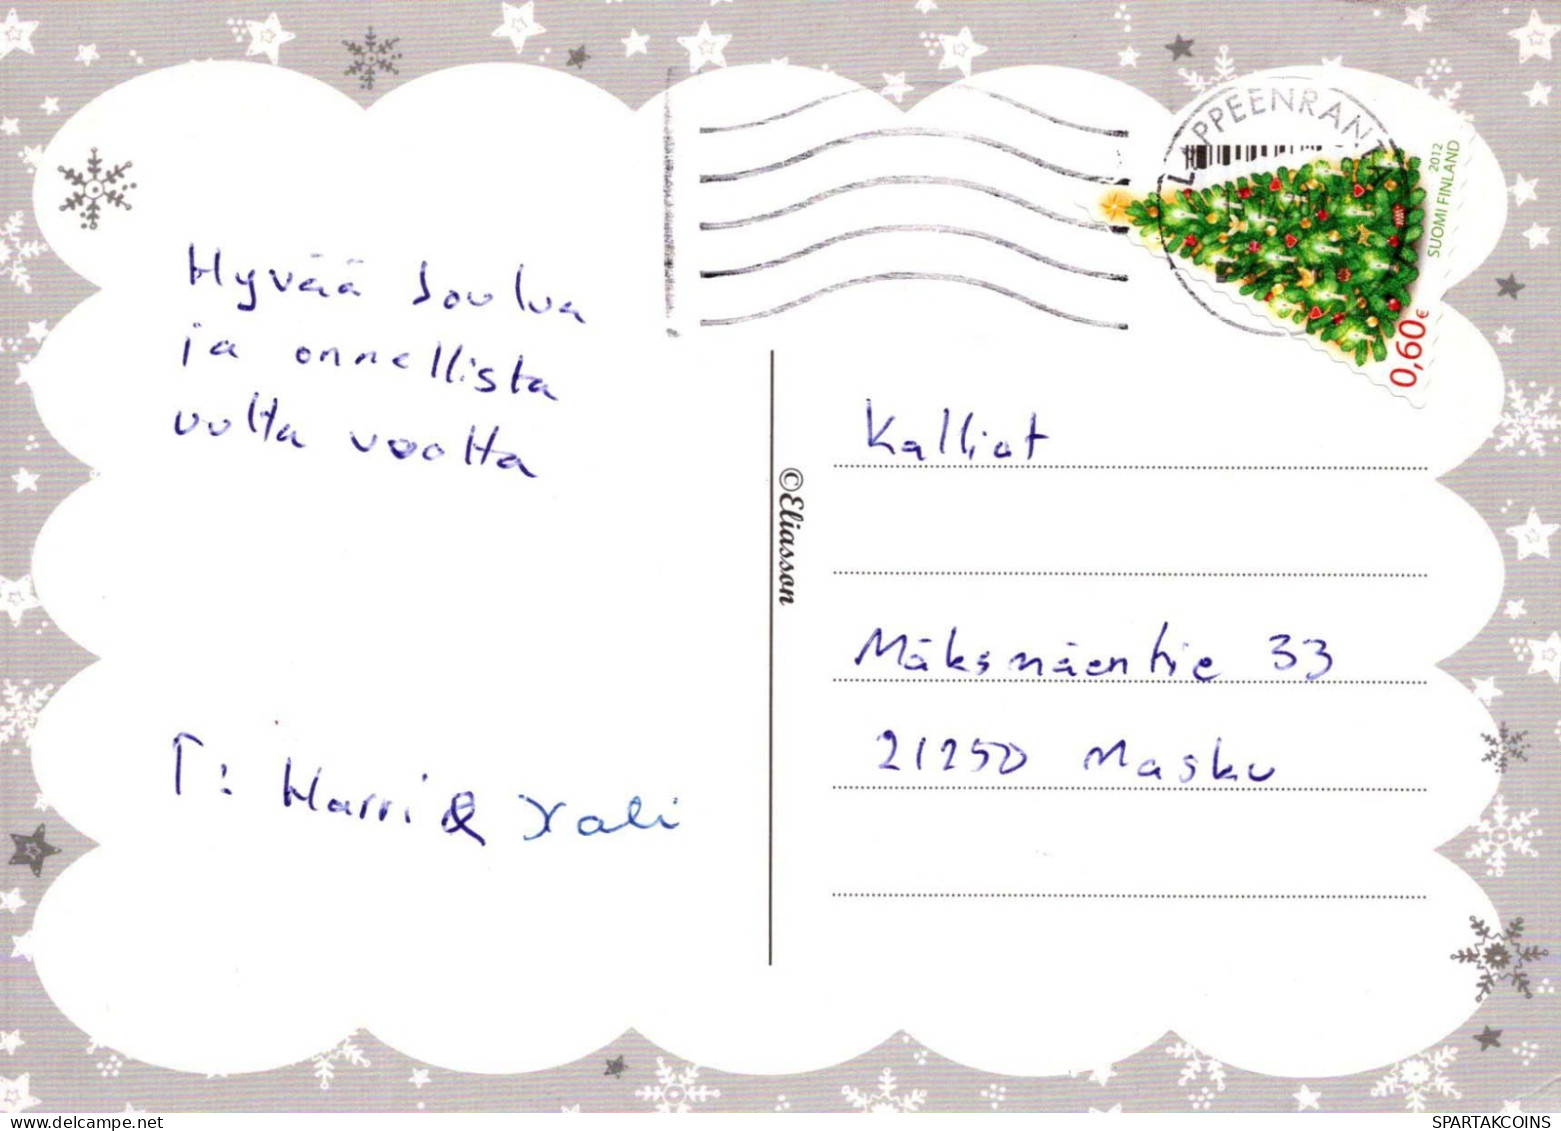 Hyvää Joulua
ja onnellista
uutta vuotta
T: Harri &
LAPPEENRANTA
2012
SUOMI FINLAND
0,60 €
©Eliasson
Kalliot
Mäksmäentie 33
21250 Masku
SPARTAKCOINS